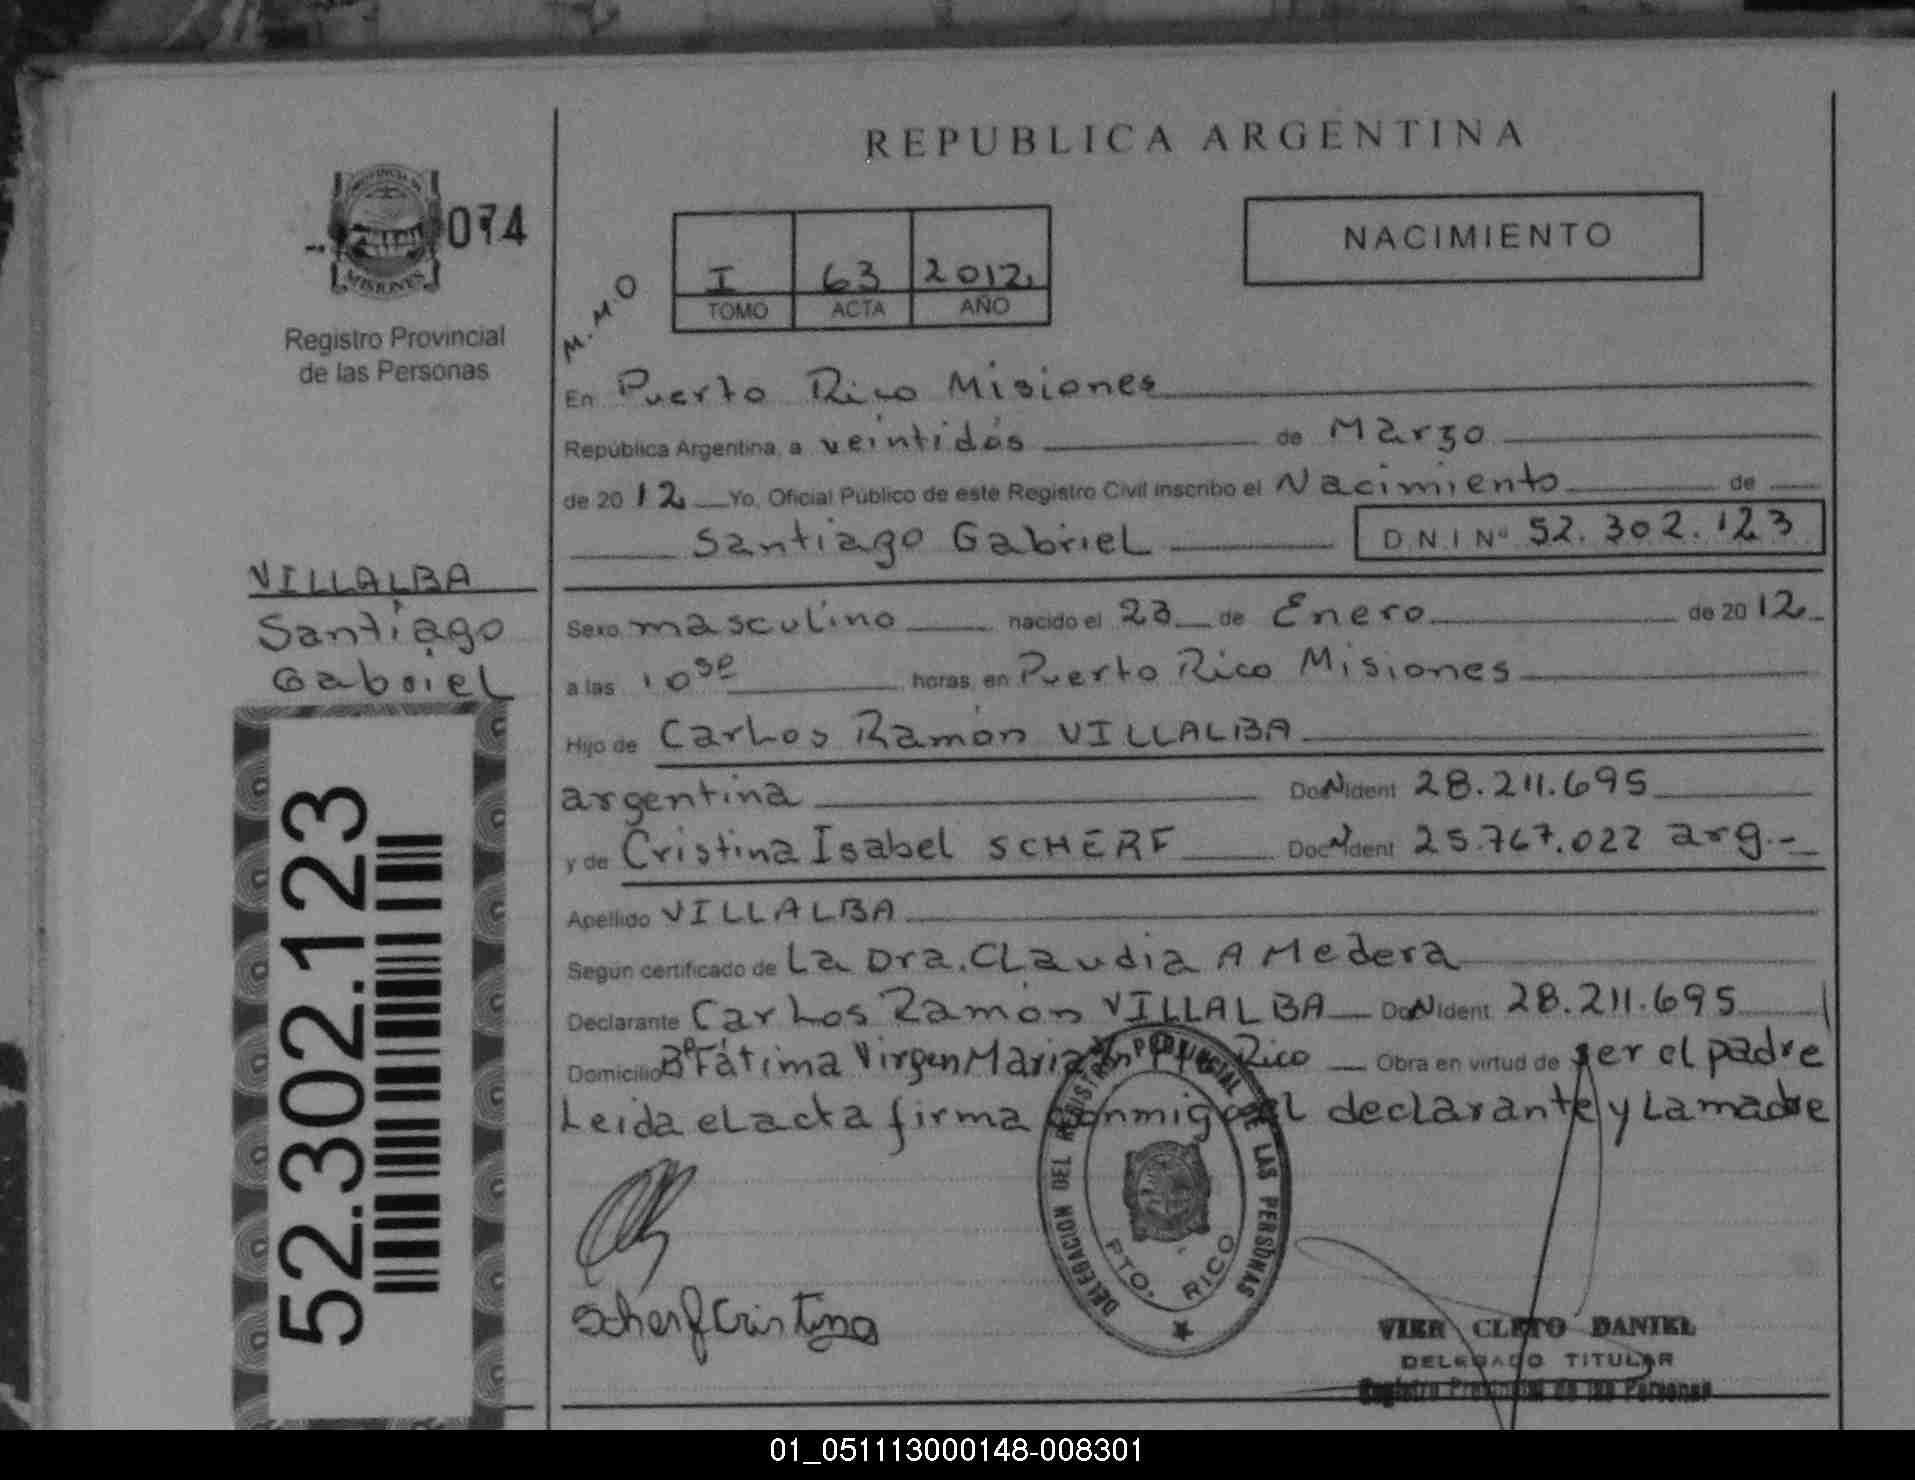 REPUBLICA ARGENTINA
NACIMIENTO
PROVINCIA DE
MISIONES
074
Registro Provincial
de las Personas
M.M.O
I 63 2012.
TOMO ACTA AÑO
En Puerto Rico Misiones
República Argentina, a veintidós de Marzo
de 2012 Yo, Oficial Público de este Registro Civil inscribo el Nacimiento de
Santiago Gabriel D.N.I Nº 52.302.123
VILLALBA
Santiago
Gabriel
Sexo masculino nacido el 23 de Enero de 2012
a las horas, en Puerto Rico Misiones
Hijo de Carlos Ramón VILLALBA
argentina Doc Ident 28.211.695
y de Cristina Isabel SCHERF Doc Ident 25.767.022 arg.-
Apellido VILLALBA
Según certificado de La Dra. Claudia A Medera
Declarante Carlos Ramón VILLALBA Doc Ident 28.211.695
Domicilio Bº Fátima Virgen María Rico Obra en virtud de ser el padre
Leida el acta firma conmigo el declarante y La madre
52.302.123
DELEGACION DEL REGISTRO PROVINCIAL DE LAS PERSONAS
PTO. RICO
Scherf Cristina
VIER CLETO DANIEL
DELEGADO TITULAR
Registro Provincial de las Personas
01_051113000148-008301